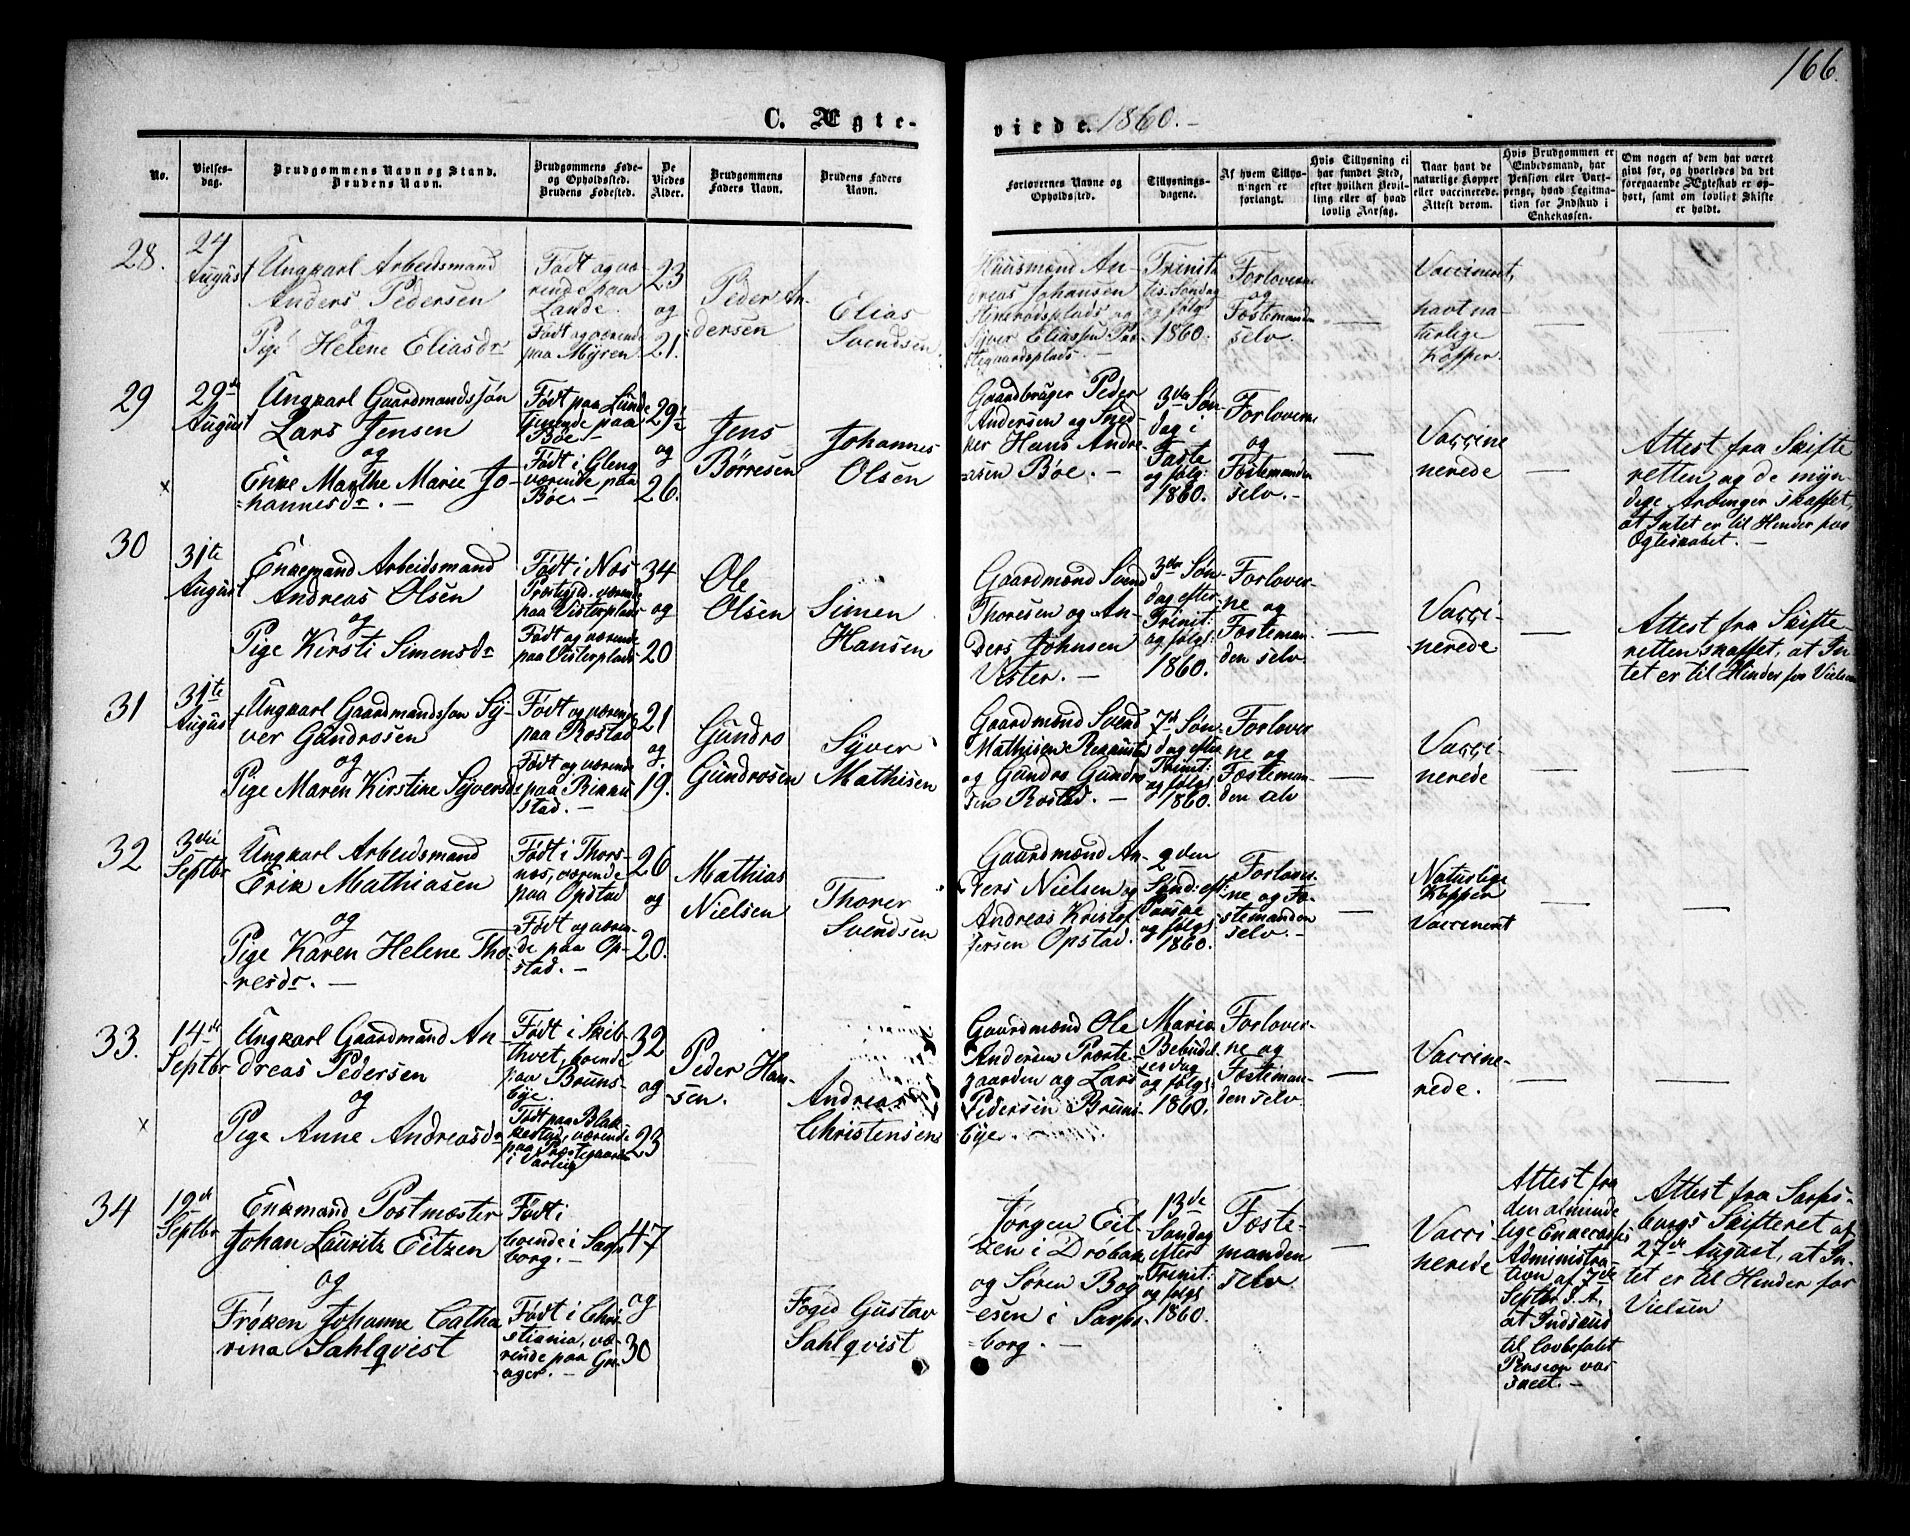 166.
C. Ægte-
viede. 1860.-
No.
Vielses-
dag.
Brudgommens Navn og Stand.
Brudens Navn.
Brudgommens Føde-
og Opholdsted.
Brudens Fødested.
De
Viedes
Alder.
Brudgommens
Faders Navn.
Brudens Faders
Navn.
Forlovernes Navne og
Opholdssted.
Tillysnings-
dagene.
Af hvem Tillys-
ningen er
forlangt.
Hvis Tillysning ei
har fundet Sted,
efter hvilken Bevil-
ling eller af hvad
lovlig Aarsag.
Naar havt de
naturlige Kopper
eller vaccinerede.
Attest derom.
Hvis Brudgommen er
Embedsmand, har
Pension eller Vart-
penge, hvad Legitima-
tion for Indskud i
Enkekassen.
Om nogen af dem har været
gift før, og hvorledes da det
foregaaende Ægteskab er op-
hørt, samt om lovligt Skifte
er holdt.
28.
24
August
Ungkarl Arbeidsmand
Anders Pedersen
og
Pige Helene Eliasdr
Født og væ-
rende paa
Lande.
Født og værende
paa Myren
23
og
21.
Peder An-
dersen
Elias
Svendsen.
Huusmænd An-
dreas Johansen
og
Syver Eliassen Præ-
stegaardsplads. -
Trinita-
tis Søndag
og følg
1860.
Forloverne
og
Fæstemanden
selv.
—
Vaccineret,
havt na-
turlige
Kopper.
—
—
29
29de
August
Ungkarl Gaardmandssøn
Lars Jensen
og
Enke Marthe Marie Jo-
=hannesdr. -
Født paa Lunde
tjenende paa
Bøe -
Født i Gleng
værende paa
Bøe -
29½
og
26.
Jens
Børresen
Johannes
Olsen
Gaardbruger Peder
Andersen og Sned-
ker Hans Andre
=sen Bøe. -
3die Søn-
dag i
Faste
og følg:
1860.
Forloverne
og
Fæstemanden
selv. -
—
Vacci
nerede
—
Attest fra Skifte
retten og de myn-
dige Arvinger skaffet,
at Intet er til Hinder for
Ægteskabet. -
x
30
31te
August
Enkemand Arbeidsmand
Andreas Olsen
og
Pige Kirsti Simensdr
Født i Nos
Præstegjd. værende
paa Visterplads
Født og værende
paa Visterplads
34
og
20
Ole
Olsen
Simen
Hansen
Gaardmænd Svend
Thoresen og An-
ders Johnsen
Vister. -
3die Søn-
dag efter
Trinit:
og følg:
1860.
Forlover-
ne og
Fæsteman-
den selv
—
Vacci-
nerede
—
Attest fra Skifte-
retten skaffet, at In-
tet er til Hinder for Vielsen
31
31te
August
Ungkarl Gaardmandssøn Sy-
ver Gundrosen
og
Pige Maren Kirstine Syversdr
Født og værende
paa Rostad
Født og værende
paa Rikku
stad. -
21
og
19.
Gundro
Gundrosen
Syver
Mathisen
Gaardmænd Svend
Mathisen Rikkustad
og Gundro Gundro
sen Rostad. -
7de Søn-
dag efter
Trinit:
og følg:
1860.
Forlover
ne og
Fæsteman-
den selv
—
Vacci-
nerede
—
—
32
3die
Septbr
Ungkarl Arbeidsmand
Erik Mathiasen
og
Pige Karen Helene Tho-
-resdr. -
Født i Thors-
næs, værende
paa Opstad
Født og væren-
de paa Op-
stad. -
26
og
20.
Mathias
Nielsen
Thorer
Svendsen
Gaardmænd An-
ders Nielsen og
Andreas Kristof
fersen Opstad.
2den
Sønd: eft:
Paaske
og følg:
1860.
Forlover-
ne og Fæ-
stemanden
selv. -
—
Naturlige
Kopper
Vaccineret
—
—
33.
14de
Septbr
Ungkarl Gaardmand An-
dreas Pedersen
og
Pige Anne Andreasdr
Født i Skib-
thvet, boende
paa Bruns-
bye.
Født paa Blak-
kestad, værende
paa Præstegaarden
i Varteig
32
og
23
Peder Han-
sen.
Andreas
Christensen
Gaardmænd Ole
Andersen Præste-
gaarden og Lars
Pedersen Bruns-
bye. -
Mariæ
Bebudel
sesdag
og følg:
1860.
Forlover-
ne og
Fæsteman-
den selv.
—
Vaccine-
rede.
—
—
x
34
19de
Septbr
Enkemand Postmester
Johan Lauritz Eitzen
og
Frøken Johanne Catha
rina Sahlqvist
Født i
boende i Sarps
borg. -
Født i Chri-
stiania, væ-
rende paa Gre-
ager. -
47
og
30
Foged Gustav
Sahlqvist
Jørgen Eit-
zen i Drøbak
og Søren Bog
=esen i Sarps-
borg. -
13de
Søndag
efter
Trinit:
og følg:
1860.
Fæste-
manden
selv.
—
Vacci
nerede
Attest fra
den alminde
lige Enkecasses
Administra
tion af 7de
Septbr d. A,
at Indskud
til lovbefalet
Pension var
skeet. -
Attest fra Sarps-
borgs Skifteret af
27de August, at In-
tet er til Hinder for
Vielsen